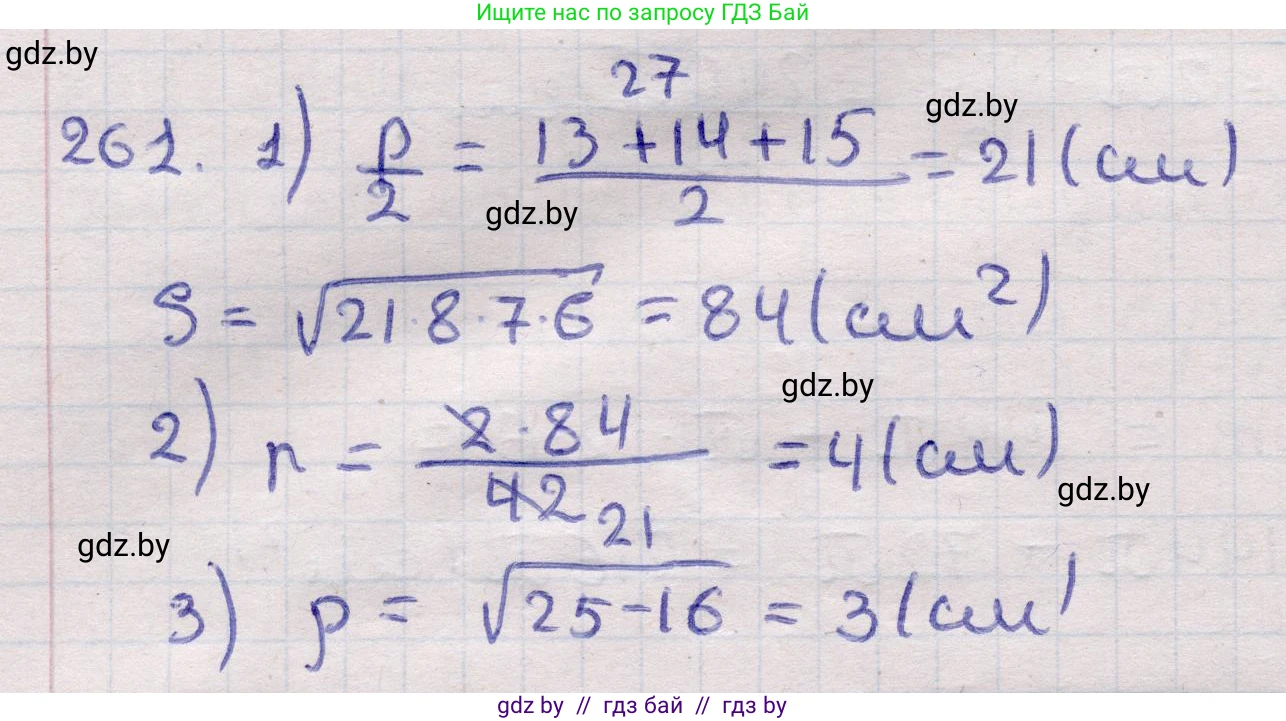 Ищите нас по запросу ГДЗ Бай
gdz.by
27
261. 1) p/2 = (13+14+15)/2 = 21 (см)
gdz.by
gdz.by
S = √(21·8·7·6) = 84 (см²)
gdz.by
2) r = (2·84)/42 = 4 (см)
21
gdz.by
gdz.by
3) ρ = √(25-16) = 3 (см)
gdz.by // гдз бай // гдз by